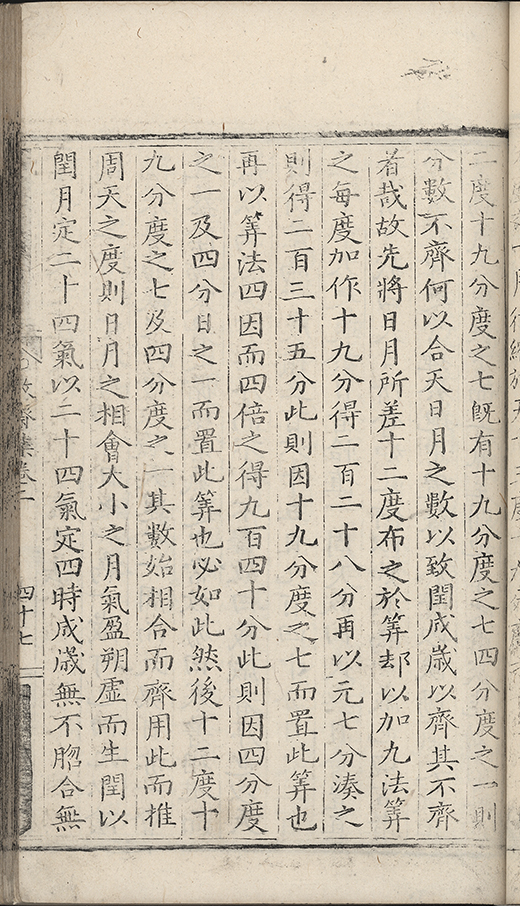 二度十九分度之七既有十九分度之七四分度之一則
分數不齊何以合天日月之數以致閏成歲以齊其不齊
者哉故先將日月所差十二度布之於筭却以加九法筭
之每度加作十九分得二百二十八分再以元七分湊之
則得二百三十五分此則因十九分度之七而置此筭也
再以筭法四因而四倍之得九百四十分此則因四分度
之一及四分日之一而置此筭也必如此然後十二度十
九分度之七及四分度之一其數始相合而齊用此而推
周天之度則日月之相會大小之月氣盈朔虛而生閏以
閏月定二十四氣以二十四氣定四時成歲無不脗合無
集卷二
四十七